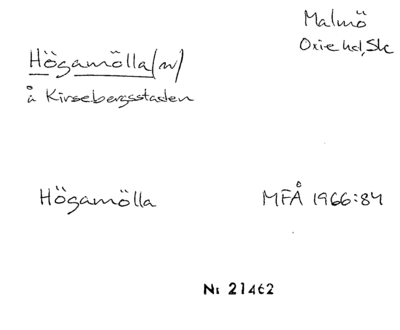 Malmö
Oxie hd, Sk
Högamölla/n/
å Kirsebergsstaden
Högamölla
MFÅ 1966:84
Nr 21462